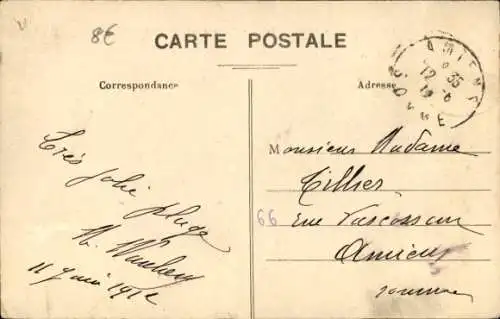 8€
CARTE POSTALE
Correspondance
Adresse
AMIENS
12 35
SOMME
Monsieur Madame
Tillier
66 rue Vascosan
Amiens
Somme
Très
jolie plage
11 juin 1912